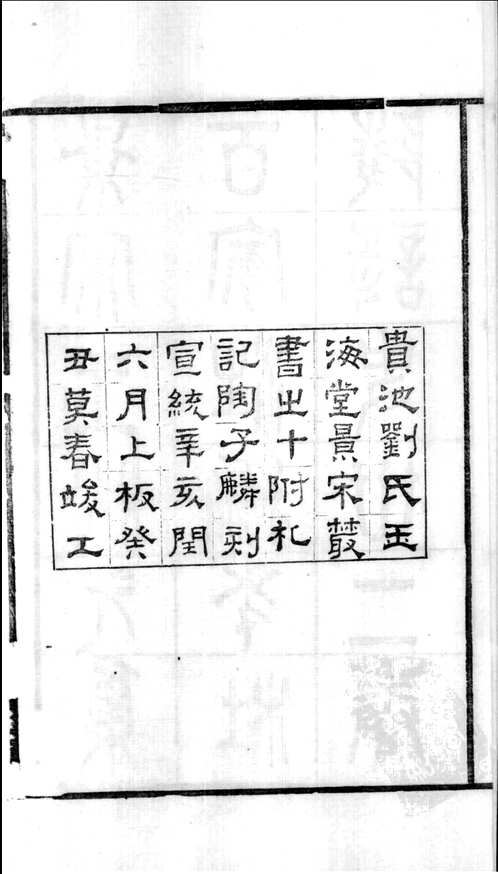 貴池劉氏玉
海堂景宋叢
書之十附札
記陶子麟刻
宣統辛亥閏
六月上板癸
丑莫春竣工